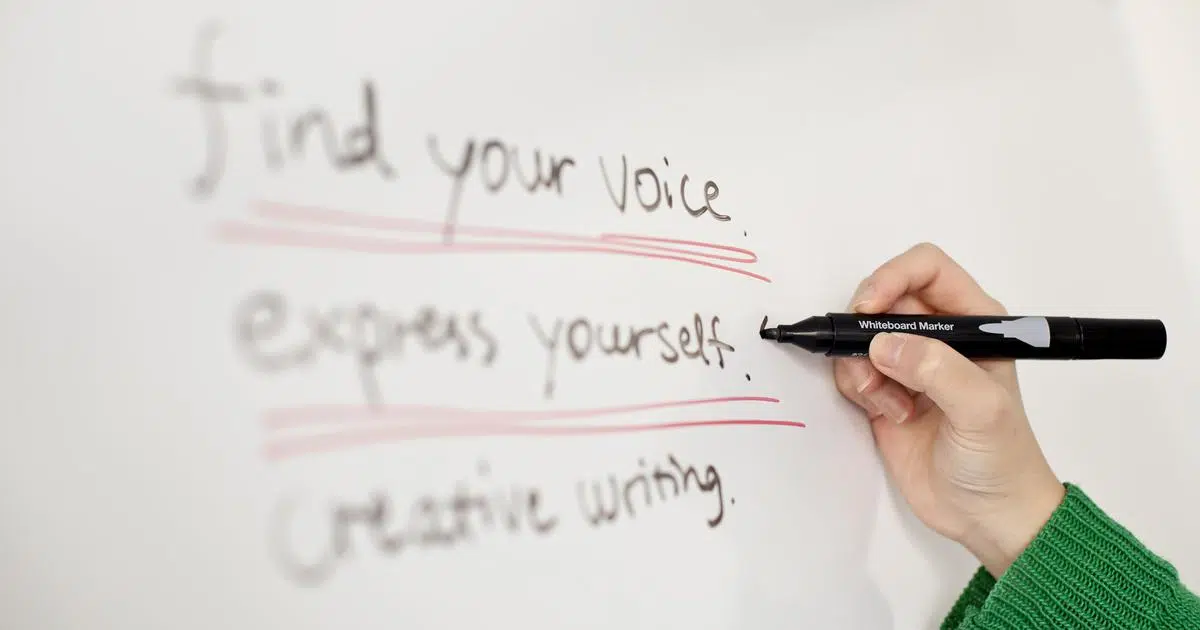 find your voice.
express yourself.
creative writing.
Whiteboard Marker